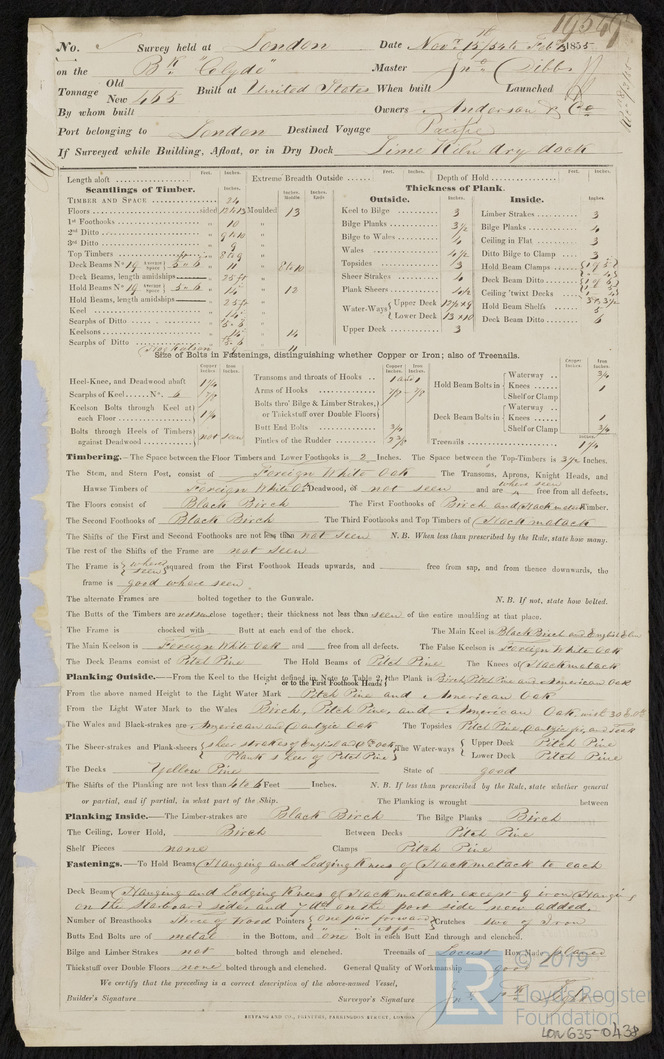 19549
No. Survey held at London Date Novr 15th/54 to Feb 1855
on the Bk "Clyde" Master Jno Dibb
Tonnage Old
New 465 Built at United States When built Launched
By whom built Owners Anderson & Co
Port belonging to London Destined Voyage Pacific
If Surveyed while Building, Afloat, or in Dry Dock Lime Kiln dry dock
Length aloft Feet. Inches. Extreme Breadth Outside Feet. Inches. Depth of Hold Feet. Inches.
Scantlings of Timber.
TIMBER AND SPACE 24
Floors sided 12 to 13 Moulded 13
1st Foothooks 10
2nd Ditto 9 to 10
3rd Ditto 9
Top Timbers 8 to 9
Deck Beams No 19 Average Space 5-6 11 8 to 10
Deck Beams, length amidships 25 ft
Hold Beams No 19 Average Space 5-6 14 12
Hold Beams, length amidships 25 ft
Keel 14
Scarphs of Ditto 5-6
Keelsons 14 14
Scarphs of Ditto 5-6
Thickness of Plank.
Outside.
Keel to Bilge 3
Bilge Planks 3 1/2
Bilge to Wales 4
Wales 4 1/2
Topsides 3
Sheer Strakes 4
Plank Sheers 4 1/2
Water-Ways Upper Deck
Lower Deck 13 x 10
Upper Deck 3
Inside.
Limber Strakes 3
Bilge Planks 4
Ceiling in Flat 3
Ditto Bilge to Clamp 3
Hold Beam Clamps
Deck Beam Ditto
Ceiling 'twixt Decks
Hold Beam Shelfs
Deck Beam Ditto
Size of Bolts in Fastenings, distinguishing whether Copper or Iron; also of Treenails.
Heel-Knee, and Deadwood abaft 1 1/4
Scarphs of Keel No. 6 7/8
Keelson Bolts through Keel at each Floor 1 1/4
Bolts through Heels of Timbers against Deadwood not seen
Transoms and throats of Hooks 1 and 1
Arms of Hooks 7/8 - 7/8
Bolts thro' Bilge & Limber Strakes, or to Thickstuff over Double Floors
Butt End Bolts 3/4
Pintles of the Rudder 2 3/4
Hold Beam Bolts in Waterway 3/4
Knees 1
Shelf or Clamp
Deck Beam Bolts in Waterway
Knees 1
Shelf or Clamp 3/4
Treenails Inches. 1 1/4
Timbering.—The Space between the Floor Timbers and Lower Foothooks is 2 Inches. The Space between the Top-Timbers is 3 1/2 Inches.
The Stem, and Stern Post, consist of Foreign White Oak The Transoms, Aprons, Knight Heads, and
Hawse Timbers of Foreign White Oak Deadwood, is not seen and are where seen free from all defects.
The Floors consist of Black Birch The First Foothooks of Birch and Hackmatack Timber.
The Second Foothooks of Black Birch The Third Foothooks and Top Timbers of Hackmatack
The Shifts of the First and Second Foothooks are not less than not seen N.B. When less than prescribed by the Rule, state how many.
The rest of the Shifts of the Frame are not seen
The Frame is where seen squared from the First Foothook Heads upwards, and free from sap, and from thence downwards, the
frame is good where seen.
The alternate Frames are bolted together to the Gunwale. N.B. If not, state how bolted.
The Butts of the Timbers are not seen close together; their thickness not less than seen of the entire moulding at that place.
The Frame is chocked with Butt at each end of the chock. The Main Keel is Black Birch and English Elm
The Main Keelson is Foreign White Oak and free from all defects. The False Keelson is Foreign White Oak
The Deck Beams consist of Pitch Pine The Hold Beams of Pitch Pine The Knees of Hackmatack
Planking Outside.—From the Keel to the Height defined in Note to Table 2, or to the First Foothook Heads the Plank is Birch, Pitch Pine and American Oak
From the above named Height to the Light Water Mark Pitch Pine and American Oak
From the Light Water Mark to the Wales Birch, Pitch Pine, and American Oak
The Wales and Black-strakes are American and Dantzic Oak The Topsides Pitch Pine, Dantzic fir, and Teak
The Sheer-strakes and Plank-sheers sheer strakes of English and Oak Plank sheer of Pitch Pine The Water-ways Upper Deck Pitch Pine
Lower Deck Pitch Pine
The Decks Yellow Pine State of good
The Shifts of the Planking are not less than 4 to 5 Feet Inches. N.B. If less than prescribed by the Rule, state whether general
or partial, and if partial, in what part of the Ship. The Planking is wrought between
Planking Inside.—The Limber-strakes are Black Birch The Bilge Planks Birch
The Ceiling, Lower Hold, Birch Between Decks Pitch Pine
Shelf Pieces none Clamps Pitch Pine
Fastenings.—To Hold Beams Hanging and Lodging Knees of Hackmatack to each
Deck Beams Hanging and Lodging Knees of Hackmatack except 9 iron Hanging
on the starboard side and 7 do on the port side now added.
Number of Breasthooks three of Wood Pointers one pair forward Crutches two of Iron
Butts End Bolts are of metal in the Bottom, and one Bolt in each Butt End through and clenched.
Bilge and Limber Strakes not bolted through and clenched. Treenails of Locust How Made planed
Thickstuff over Double Floors none bolted through and clenched. General Quality of Workmanship good
We certify that the preceding is a correct description of the above-named Vessel,
Builder's Signature Surveyor's Signature
RUFFANG AND CO., PRINTERS, FARRINGDON STREET, LONDON
© 2019
LR
Lloyd's Register
Foundation
LON 635-0438